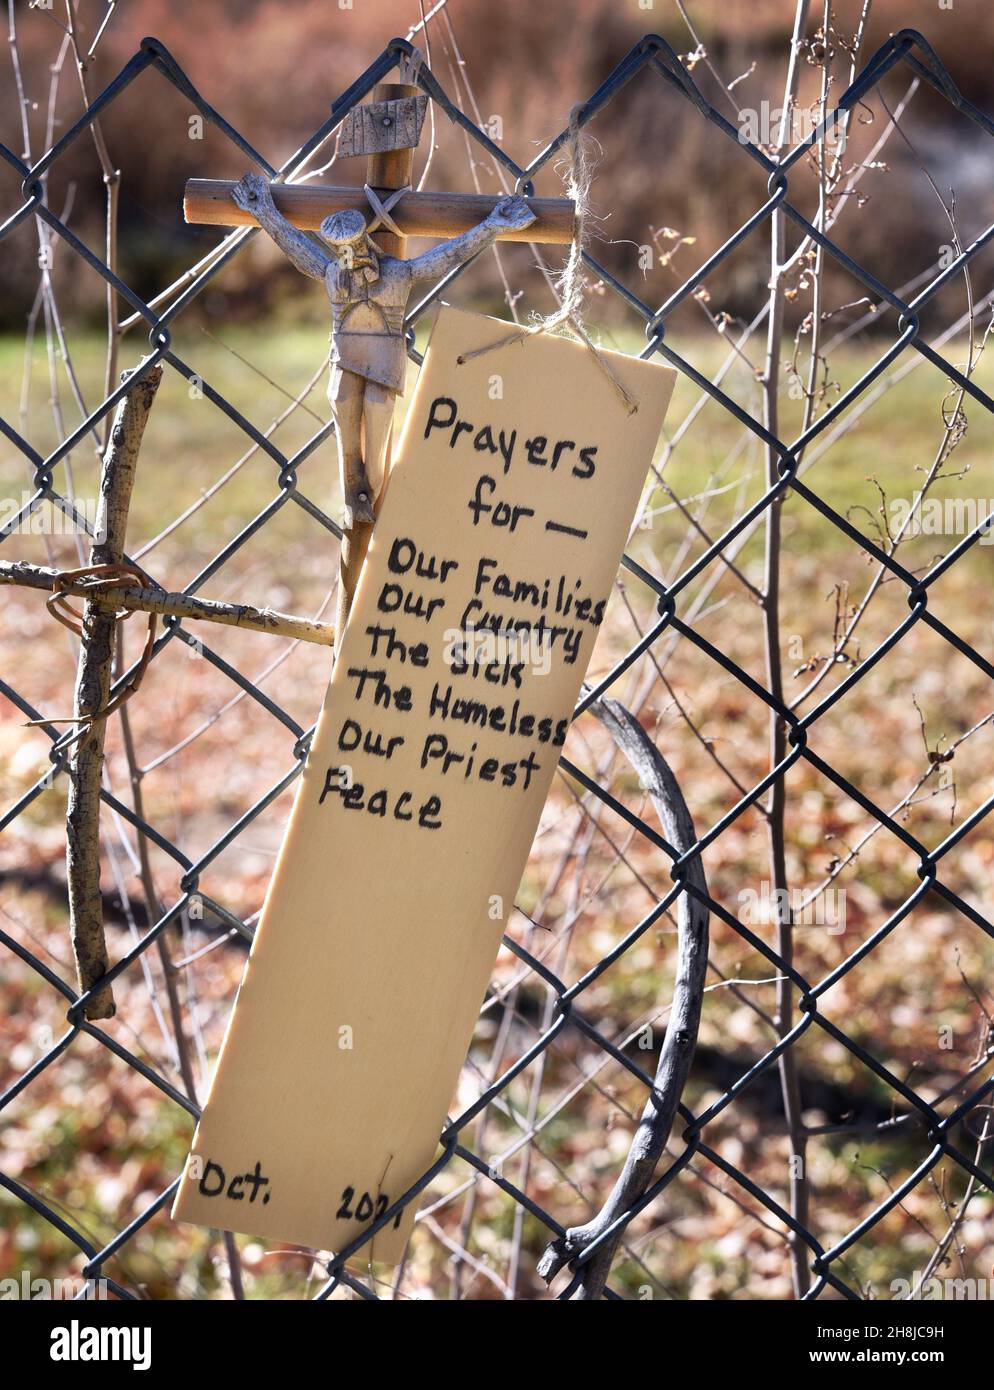 Prayers
for —
Our Families
Our Country
The Sick
The Homeless
Our Priest
Peace
Oct. 2021
alamy
Image ID: 2H8JC9H
www.alamy.com